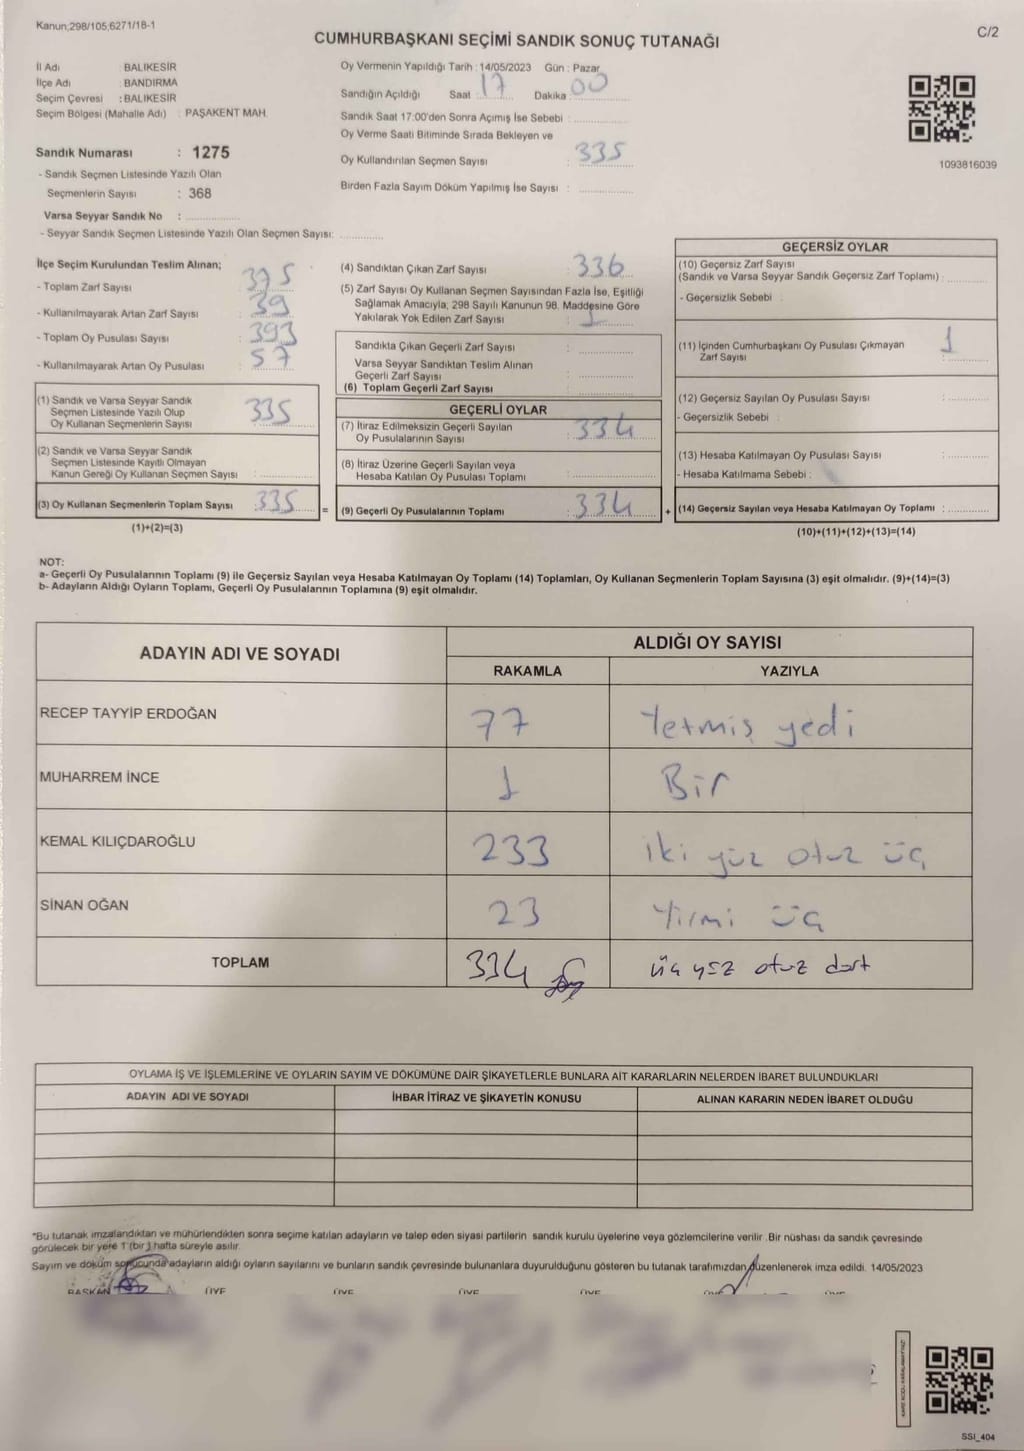 Kanun;298/105;6271/18-1
C/2
CUMHURBAŞKANI SEÇİMİ SANDIK SONUÇ TUTANAĞI
İl Adı : BALIKESİR
İlçe Adı : BANDIRMA
Seçim Çevresi : BALIKESİR
Seçim Bölgesi (Mahalle Adı) : PAŞAKENT MAH.
Sandık Numarası : 1275
- Sandık Seçmen Listesinde Yazılı Olan
Seçmenlerin Sayısı : 368
Varsa Seyyar Sandık No :
- Seyyar Sandık Seçmen Listesinde Yazılı Olan Seçmen Sayısı:
Oy Vermenin Yapıldığı Tarih : 14/05/2023 Gün : Pazar
Sandığın Açıldığı Saat : 17 Dakika : 00
Sandık Saat 17:00'den Sonra Açımış İse Sebebi :
Oy Verme Saati Bitiminde Sırada Bekleyen ve
Oy Kullandırılan Seçmen Sayısı : 335
Birden Fazla Sayım Döküm Yapılmış İse Sayısı :
1093816039
İlçe Seçim Kurulundan Teslim Alınan;
- Toplam Zarf Sayısı : 375
- Kullanılmayarak Artan Zarf Sayısı : 39
- Toplam Oy Pusulası Sayısı : 393
- Kullanılmayarak Artan Oy Pusulası : 57
(1) Sandık ve Varsa Seyyar Sandık
Seçmen Listesinde Yazılı Olup
Oy Kullanan Seçmenlerin Sayısı : 335
(2) Sandık ve Varsa Seyyar Sandık
Seçmen Listesinde Kayıtlı Olmayan
Kanun Gereği Oy Kullanan Seçmen Sayısı :
(3) Oy Kullanan Seçmenlerin Toplam Sayısı : 335 =
(1)+(2)=(3)
(4) Sandıktan Çıkan Zarf Sayısı : 336
(5) Zarf Sayısı Oy Kullanan Seçmen Sayısından Fazla İse, Eşitliği
Sağlamak Amacıyla; 298 Sayılı Kanunun 98. Maddesine Göre
Yakılarak Yok Edilen Zarf Sayısı : 1
Sandıkta Çıkan Geçerli Zarf Sayısı :
Varsa Seyyar Sandıktan Teslim Alınan
Geçerli Zarf Sayısı :
(6) Toplam Geçerli Zarf Sayısı :
GEÇERLİ OYLAR
(7) İtiraz Edilmeksizin Geçerli Sayılan
Oy Pusulalarının Sayısı : 334
(8) İtiraz Üzerine Geçerli Sayılan veya
Hesaba Katılan Oy Pusulası Toplamı :
(9) Geçerli Oy Pusulalarının Toplamı : 334 +
GEÇERSİZ OYLAR
(10) Geçersiz Zarf Sayısı
(Sandık ve Varsa Seyyar Sandık Geçersiz Zarf Toplamı) :
- Geçersizlik Sebebi :
(11) İçinden Cumhurbaşkanı Oy Pusulası Çıkmayan
Zarf Sayısı : 1
(12) Geçersiz Sayılan Oy Pusulası Sayısı :
- Geçersizlik Sebebi :
(13) Hesaba Katılmayan Oy Pusulası Sayısı :
- Hesaba Katılmama Sebebi :
(14) Geçersiz Sayılan veya Hesaba Katılmayan Oy Toplamı :
(10)+(11)+(12)+(13)=(14)
NOT:
a- Geçerli Oy Pusulalarının Toplamı (9) ile Geçersiz Sayılan veya Hesaba Katılmayan Oy Toplamı (14) Toplamları, Oy Kullanan Seçmenlerin Toplam Sayısına (3) eşit olmalıdır. (9)+(14)=(3)
b- Adayların Aldığı Oyların Toplamı, Geçerli Oy Pusulalarının Toplamına (9) eşit olmalıdır.
ADAYIN ADI VE SOYADI
ALDIĞI OY SAYISI
RAKAMLA YAZIYLA
RECEP TAYYİP ERDOĞAN 77 Yetmiş yedi
MUHARREM İNCE 1 Bir
KEMAL KILIÇDAROĞLU 233 iki yüz otuz üç
SİNAN OĞAN 23 Yirmi üç
TOPLAM 334 üç yüz otuz dört
OYLAMA İŞ VE İŞLEMLERİNE VE OYLARIN SAYIM VE DÖKÜMÜNE DAİR ŞİKAYETLERLE BUNLARA AİT KARARLARIN NELERDEN İBARET BULUNDUKLARI
ADAYIN ADI VE SOYADI İHBAR İTİRAZ VE ŞİKAYETİN KONUSU ALINAN KARARIN NEDEN İBARET OLDUĞU
*Bu tutanak imzalandıktan ve mühürlendikten sonra seçime katılan adayların ve talep eden siyasi partilerin sandık kurulu üyelerine veya gözlemcilerine verilir .Bir nüshası da sandık çevresinde
görülecek bir yere 1 (bir ) hafta süreyle asılır.
Sayım ve döküm sonucunda adayların aldığı oyların sayılarını ve bunların sandık çevresinde bulunanlara duyurulduğunu gösteren bu tutanak tarafımızdan düzenlenerek imza edildi. 14/05/2023
BAŞKAN ÜYE ÜYE ÜYE ÜYE ÜYE ÜYE
SSI_404